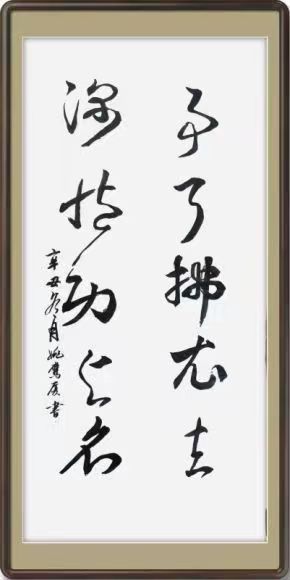 事了拂衣去
深藏功与名
辛丑冬月姚 书